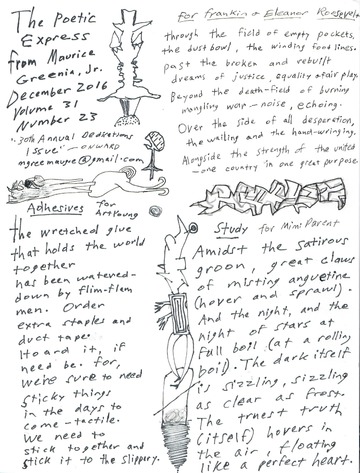 The Poetic
Express
from Maurice
Greenia, Jr.
December 2016
Volume 31
Number 23
30th Annual Dedications
Issue - onward
mgreemauye@gmail.com
for Franklin & Eleanor Roosevelt
through the field of empty pockets,
the dust bowl, the winding food lines.
past the broken and rebuilt
dreams of justice, equality & fair play.
Beyond the death-field of burning
mangling war-noise, echoing.
Over the side of all desperation,
the wailing and the hand-wringing.
Alongside the strength of the united
-one country in one great purpose
Adhesives for
Art Young
the wretched glue
that holds the world
together
has been watered-
down by flim-flam
men. Order
extra staples and
duct tape.
Hoard it, if
need be. For,
we're sure to need
sticky things
in the days to
come - tactile.
We need to
stick together and
stick it to the slippery.
Study for Mimi Parent
Amidst the satirous
groon, great claws
of misting anguetine
(hover and sprawl).
And the night, and the
night of stars at
full boil (at a rolling
boil). The dark itself
is sizzling, sizzling
as clear as frost.
The truest truth
(itself) hovers in
the air, floating
like a perfect heart.